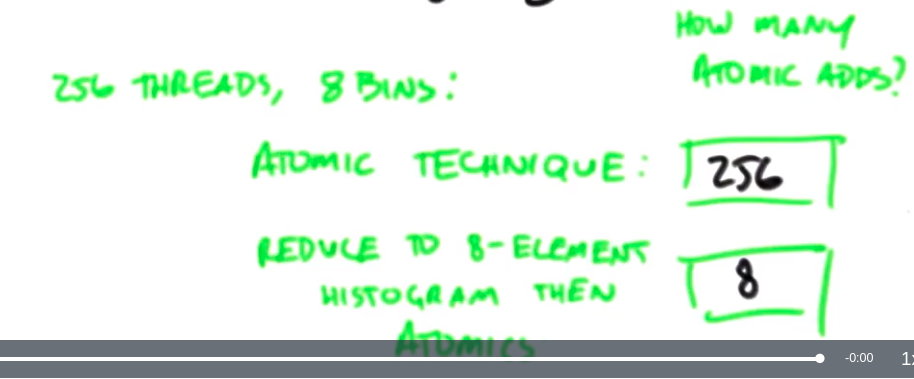 HOW MANY
ATOMIC ADDS?
256 THREADS, 8 BINS:
ATOMIC TECHNIQUE: 256
REDUCE TO 8-ELEMENT
HISTOGRAM THEN 8
ATOMICS
-0:00 1x